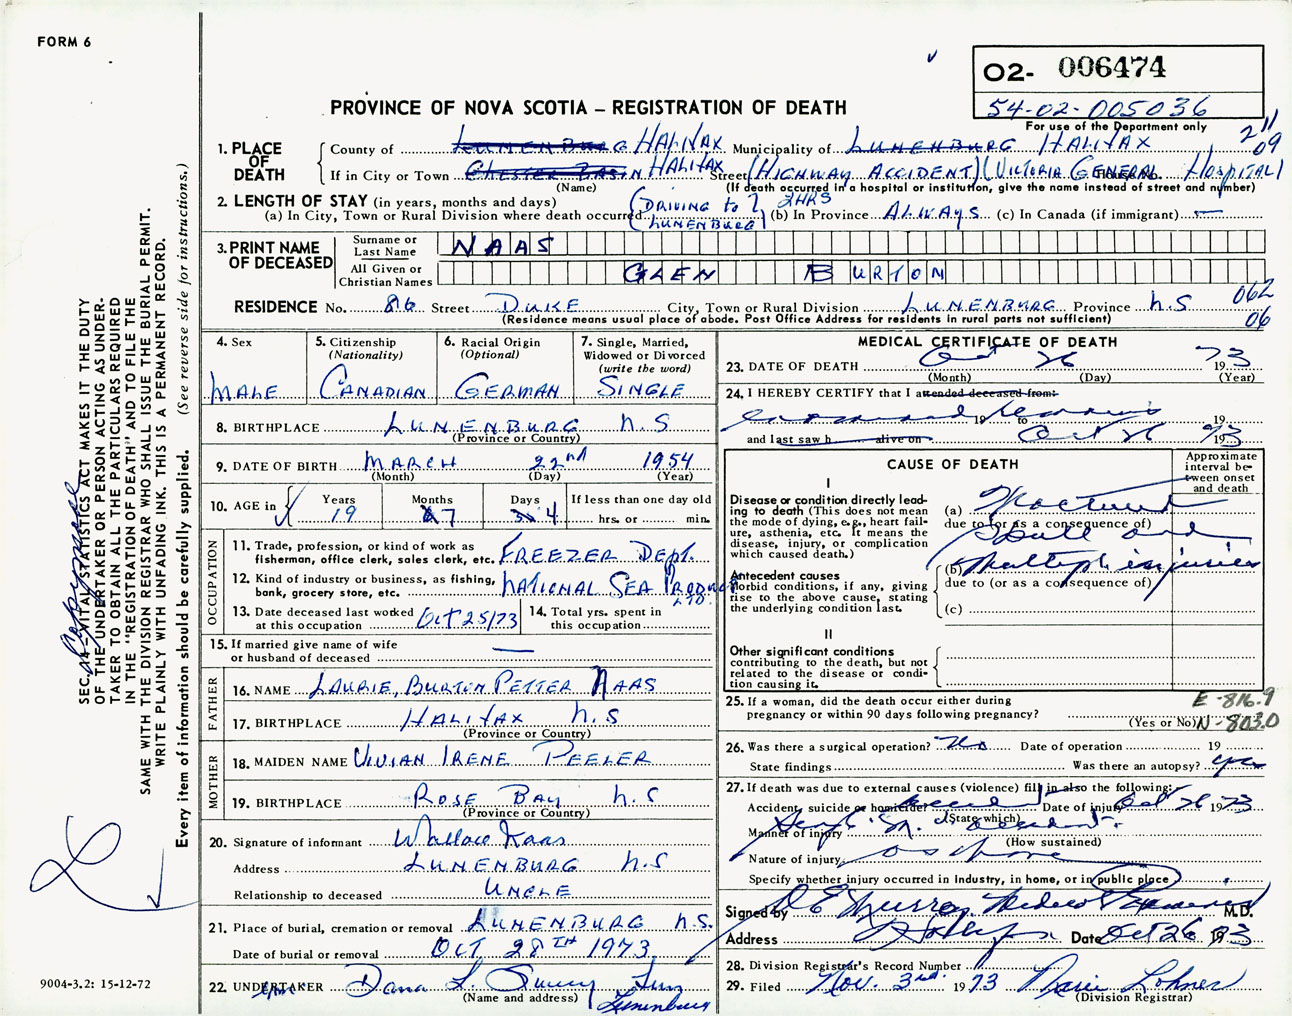 FORM 6
O2- 006474
54-02-005036
For use of the Department only
PROVINCE OF NOVA SCOTIA – REGISTRATION OF DEATH
1. PLACE OF DEATH
County of LUNENBURG HALIFAX Municipality of LUNENBURG HALIFAX 211 09
If in City or Town CHESTER BASIN HALIFAX Street (HIGHWAY ACCIDENT) (VICTORIA GENERAL HOSPITAL)
(Name) (If death occurred in a hospital or institution, give the name instead of street and number)
2. LENGTH OF STAY (in years, months and days)
(a) In City, Town or Rural Division where death occurred (DRIVING to LUNENBURG) 2HRS (b) In Province ALWAYS (c) In Canada (if immigrant) —
3. PRINT NAME OF DECEASED
Surname or Last Name NAAS
All Given or Christian Names GLEN BURTON
RESIDENCE No. 86 Street DUKE City, Town or Rural Division LUNENBURG Province N.S 062 06
(Residence means usual place of abode. Post Office Address for residents in rural parts not sufficient)
4. Sex
MALE
5. Citizenship (Nationality)
CANADIAN
6. Racial Origin (Optional)
GERMAN
7. Single, Married, Widowed or Divorced (write the word)
SINGLE
8. BIRTHPLACE LUNENBURG N.S
(Province or Country)
9. DATE OF BIRTH MARCH 22nd 1954
(Month) (Day) (Year)
10. AGE in Years Months Days If less than one day old
19 7 4 hrs. or min.
OCCUPATION
11. Trade, profession, or kind of work as fisherman, office clerk, sales clerk, etc. FREEZER DEPT.
12. Kind of industry or business, as fishing, bank, grocery store, etc. NATIONAL SEA PRODUCTS LTD.
13. Date deceased last worked at this occupation Oct 25/73
14. Total yrs. spent in this occupation
15. If married give name of wife or husband of deceased —
FATHER
16. NAME LAURIE, BURTON PETTER NAAS
17. BIRTHPLACE HALIFAX N.S
(Province or Country)
MOTHER
18. MAIDEN NAME VIVIAN IRENE PEELER
19. BIRTHPLACE ROSE BAY N.S
(Province or Country)
20. Signature of informant Wallace Naas
Address LUNENBURG N.S
Relationship to deceased UNCLE
21. Place of burial, cremation or removal LUNENBURG N.S.
Date of burial or removal OCT 28TH 1973
22. UNDERTAKER Dana L.
(Name and address) Lunenburg
MEDICAL CERTIFICATE OF DEATH
23. DATE OF DEATH Oct 26 1973
(Month) (Day) (Year)
24. I HEREBY CERTIFY that I attended deceased from:
examined remains 19 to 19
and last saw h alive on Oct 26 1973
CAUSE OF DEATH
Approximate interval between onset and death
I
Disease or condition directly leading to death (This does not mean the mode of dying, e.g., heart failure, asthenia, etc. It means the disease, injury, or complication which caused death.)
(a) Fractured
due to (or as a consequence of)
Skull and
Antecedent causes
Morbid conditions, if any, giving rise to the above cause, stating the underlying condition last.
(b) Multiple injuries
due to (or as a consequence of)
(c)
II
Other significant conditions
contributing to the death, but not related to the disease or condition causing it.
25. If a woman, did the death occur either during pregnancy or within 90 days following pregnancy?
(Yes or No)
E-816.9
N-803.0
26. Was there a surgical operation? No Date of operation 19
State findings Was there an autopsy? yes
27. If death was due to external causes (violence) fill in also the following:
Accident, suicide or homicide? Date of injury Oct 26 1973
(State which)
Manner of injury accident.
(How sustained)
Nature of injury as above
Specify whether injury occurred in industry, in home, or in public place
Signed by D E Murray Medical Examiner M.D.
Address Halifax Date Oct 26 1973
28. Division Registrar's Record Number
29. Filed Nov. 3rd. 1973 Lohnes
(Division Registrar)
SEC. 14 – VITAL STATISTICS ACT MAKES IT THE DUTY
OF THE UNDERTAKER OR PERSON ACTING AS UNDER-
TAKER TO OBTAIN ALL THE PARTICULARS REQUIRED
IN THE "REGISTRATION OF DEATH" AND TO FILE THE
SAME WITH THE DIVISION REGISTRAR WHO SHALL ISSUE THE BURIAL PERMIT.
WRITE PLAINLY WITH UNFADING INK. THIS IS A PERMANENT RECORD.
Every item of information should be carefully supplied. (See reverse side for instructions.)
9004-3.2: 15-12-72